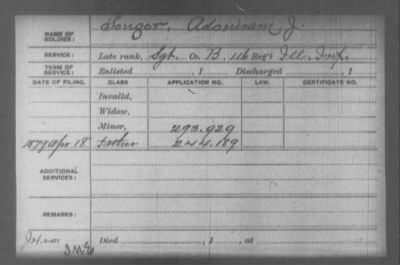 NAME OF SOLDIER: Songer, Adoniram J.
SERVICE: Late rank, Sgt. Co. B, 116 Reg't Ill. Inf.
TERM OF SERVICE: Enlisted , 1 Discharged , 1
DATE OF FILING. CLASS. APPLICATION NO. LAW. CERTIFICATE NO.
Invalid,
Widow,
Minor, 293.929
1879 Apr 18 Father 244.189
ADDITIONAL SERVICES:
REMARKS:
Died , 1 , at